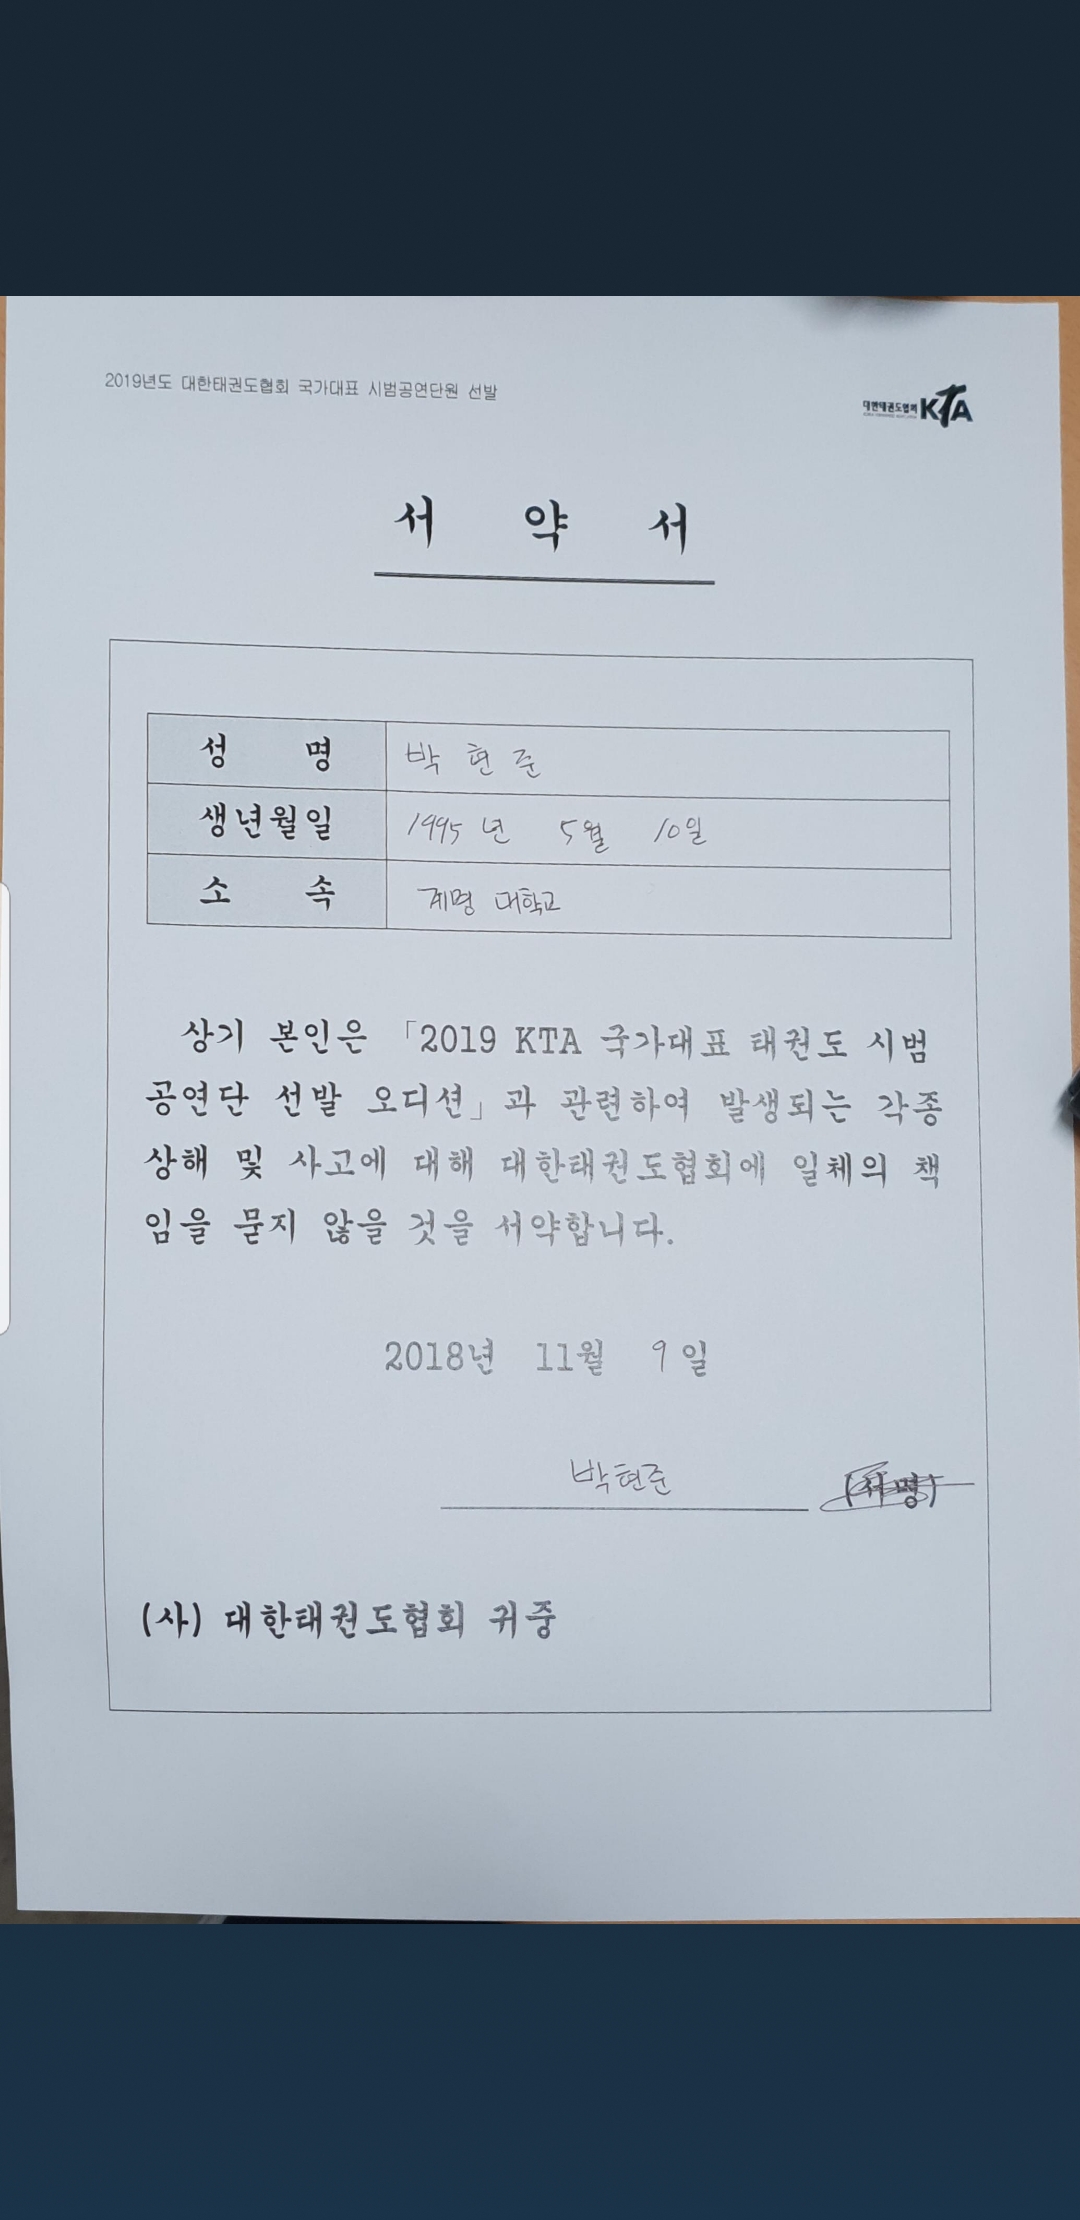 2019년도 대한태권도협회 국가대표 시범공연단원 선발
대한태권도협회 KTA
서 약 서
성 명 박 현 준
생년월일 1995년 5월 10일
소 속 계명 대학교
상기 본인은 「2019 KTA 국가대표 태권도 시범
공연단 선발 오디션」과 관련하여 발생되는 각종
상해 및 사고에 대해 대한태권도협회에 일체의 책
임을 묻지 않을 것을 서약합니다.
2018년 11월 9일
박현준 (서명)
(사) 대한태권도협회 귀중